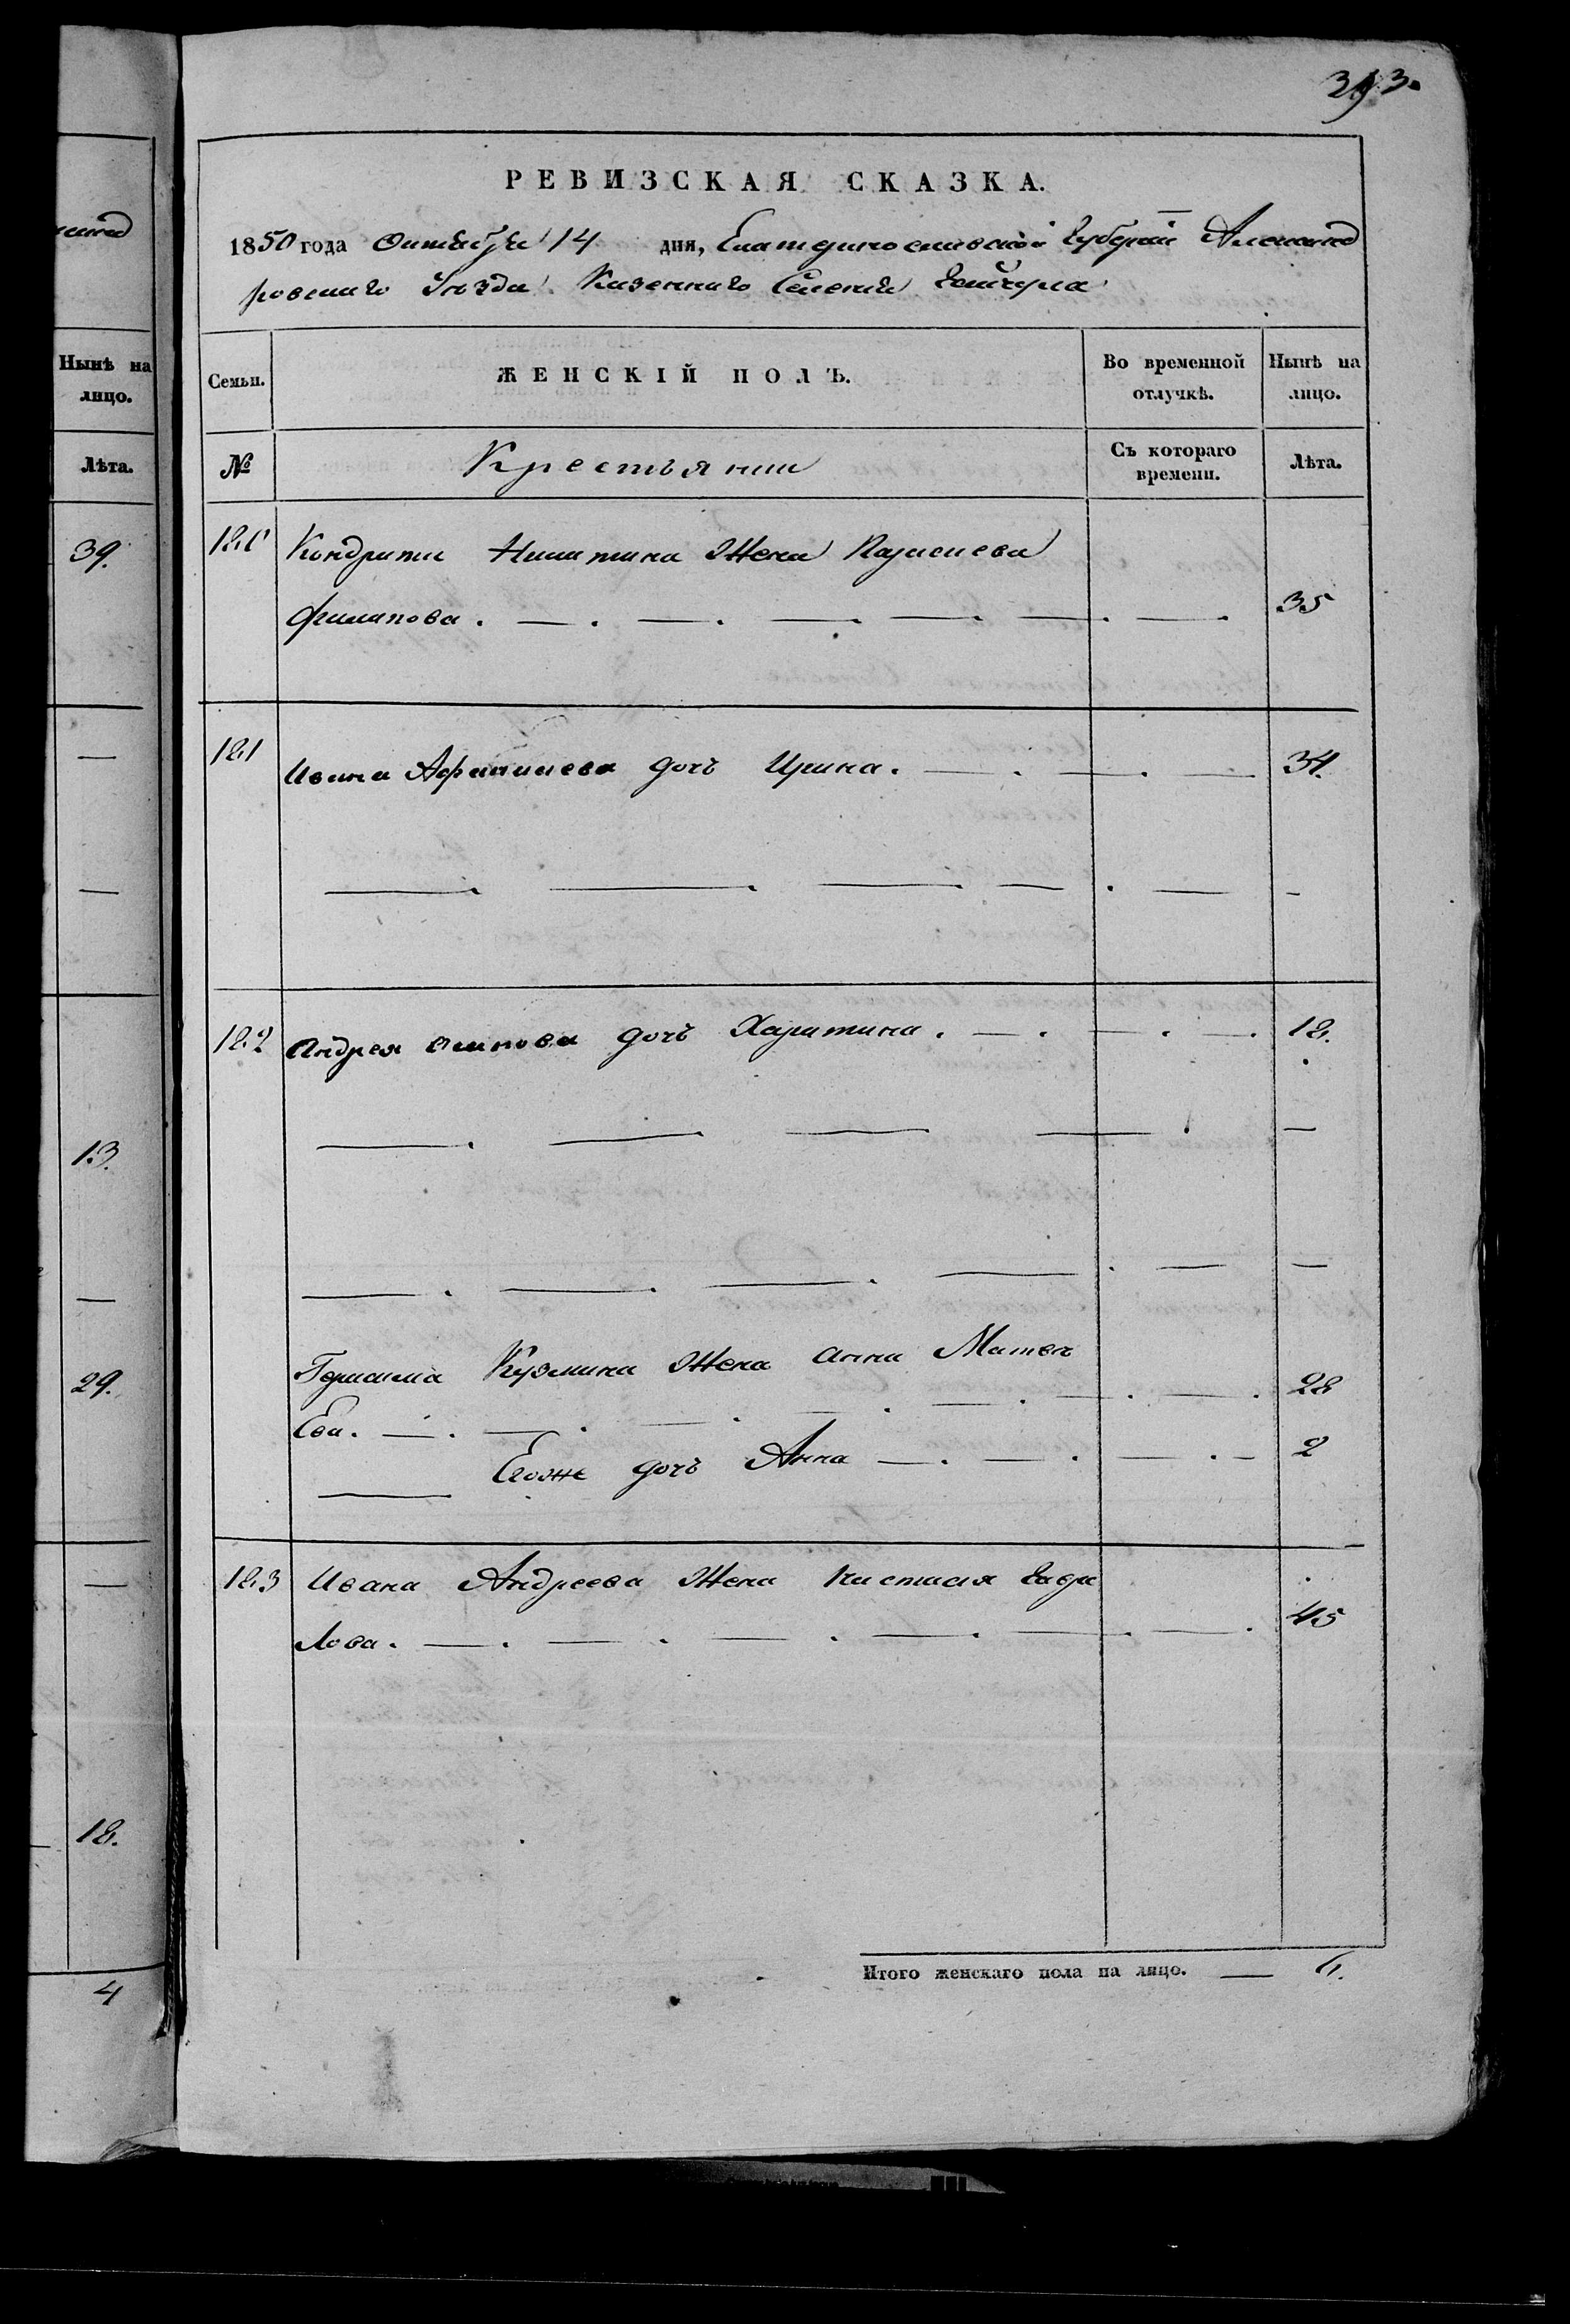 393.
РЕВИЗСКАЯ СКАЗКА.
1850 года Октября 14 дня, Екатериносливской Губернии Александ
ровскаго Уѣзда Казеннаго Селения Гайчула
Нынѣ на лицо.
Лѣта.
39.
13.
29.
18.
4
Семьи. ЖЕНСКІЙ ПОЛЪ. Во временной отлучкѣ. Нынѣ на лицо.
№ Крестьянии Съ котораго времени. Лѣта.
180 Кондрати Никитина Жена
Филипова. 35
181 Ивана Афанасиева дочь Ирина. 34.
182 Андрея Осипова дочь Харитина. 18.
Герасима Кузмина Жена Анна Матве
Ева. 28
Егоже дочь Анна 2
183 Ивана Андреева Жена Настасия Гаври
Лова. 45
Итого женскаго пола на лицо. 6.